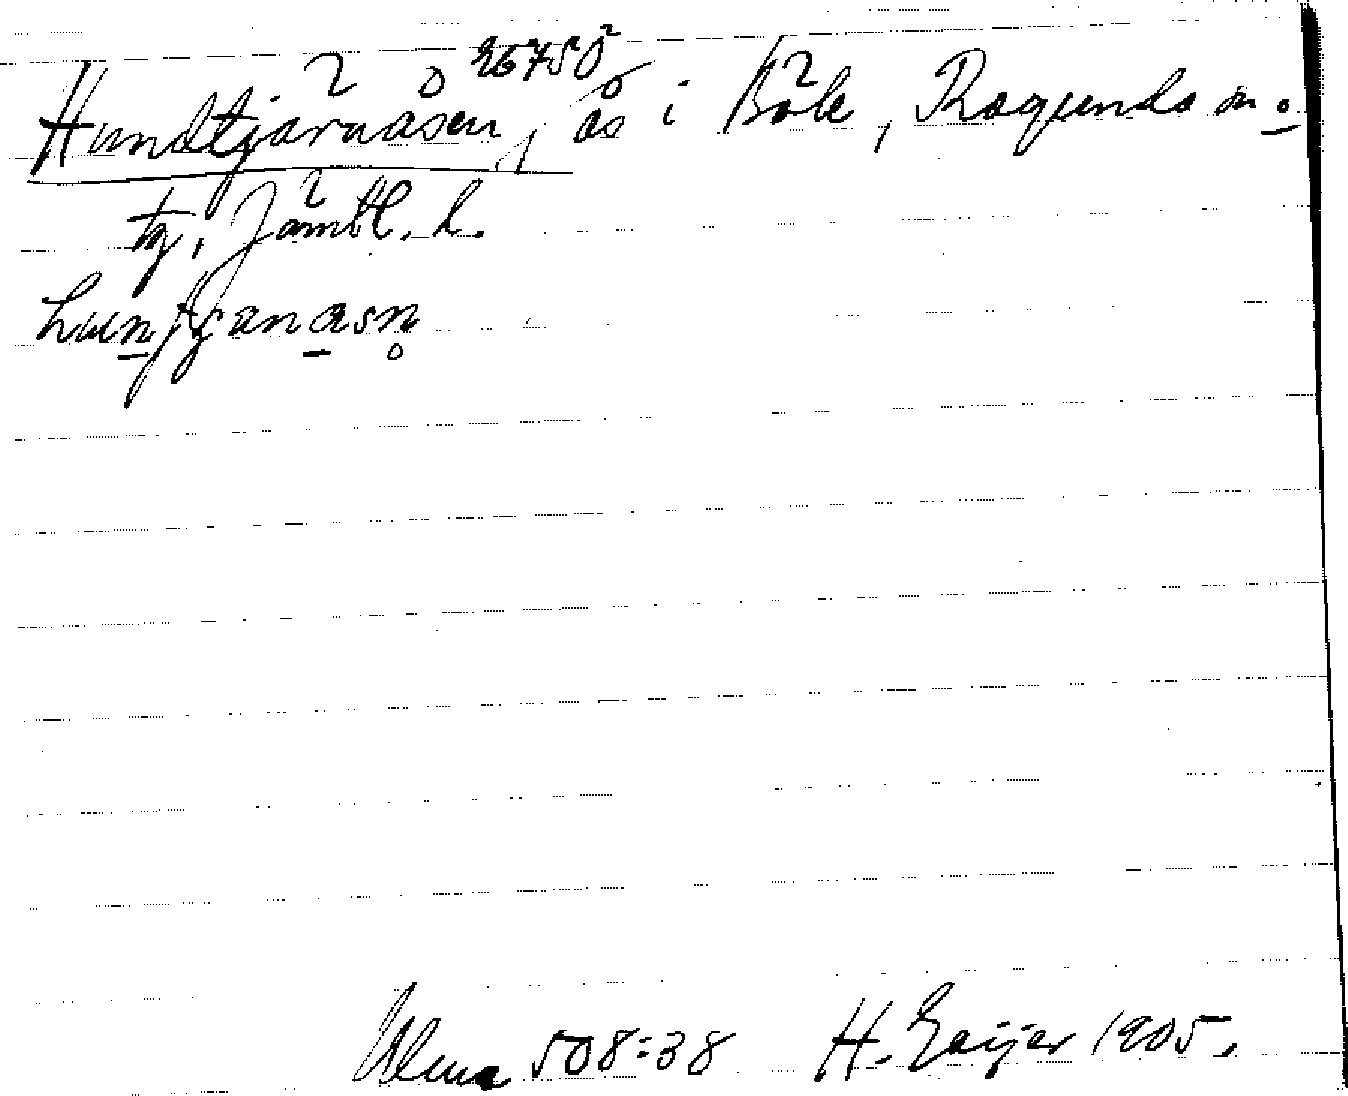 26750
Hundtjärnåsen, ås i Böle, Ragunda sn o.
tg, Jämtl. l.
Ulma 508:38 H. Geijer 1905.